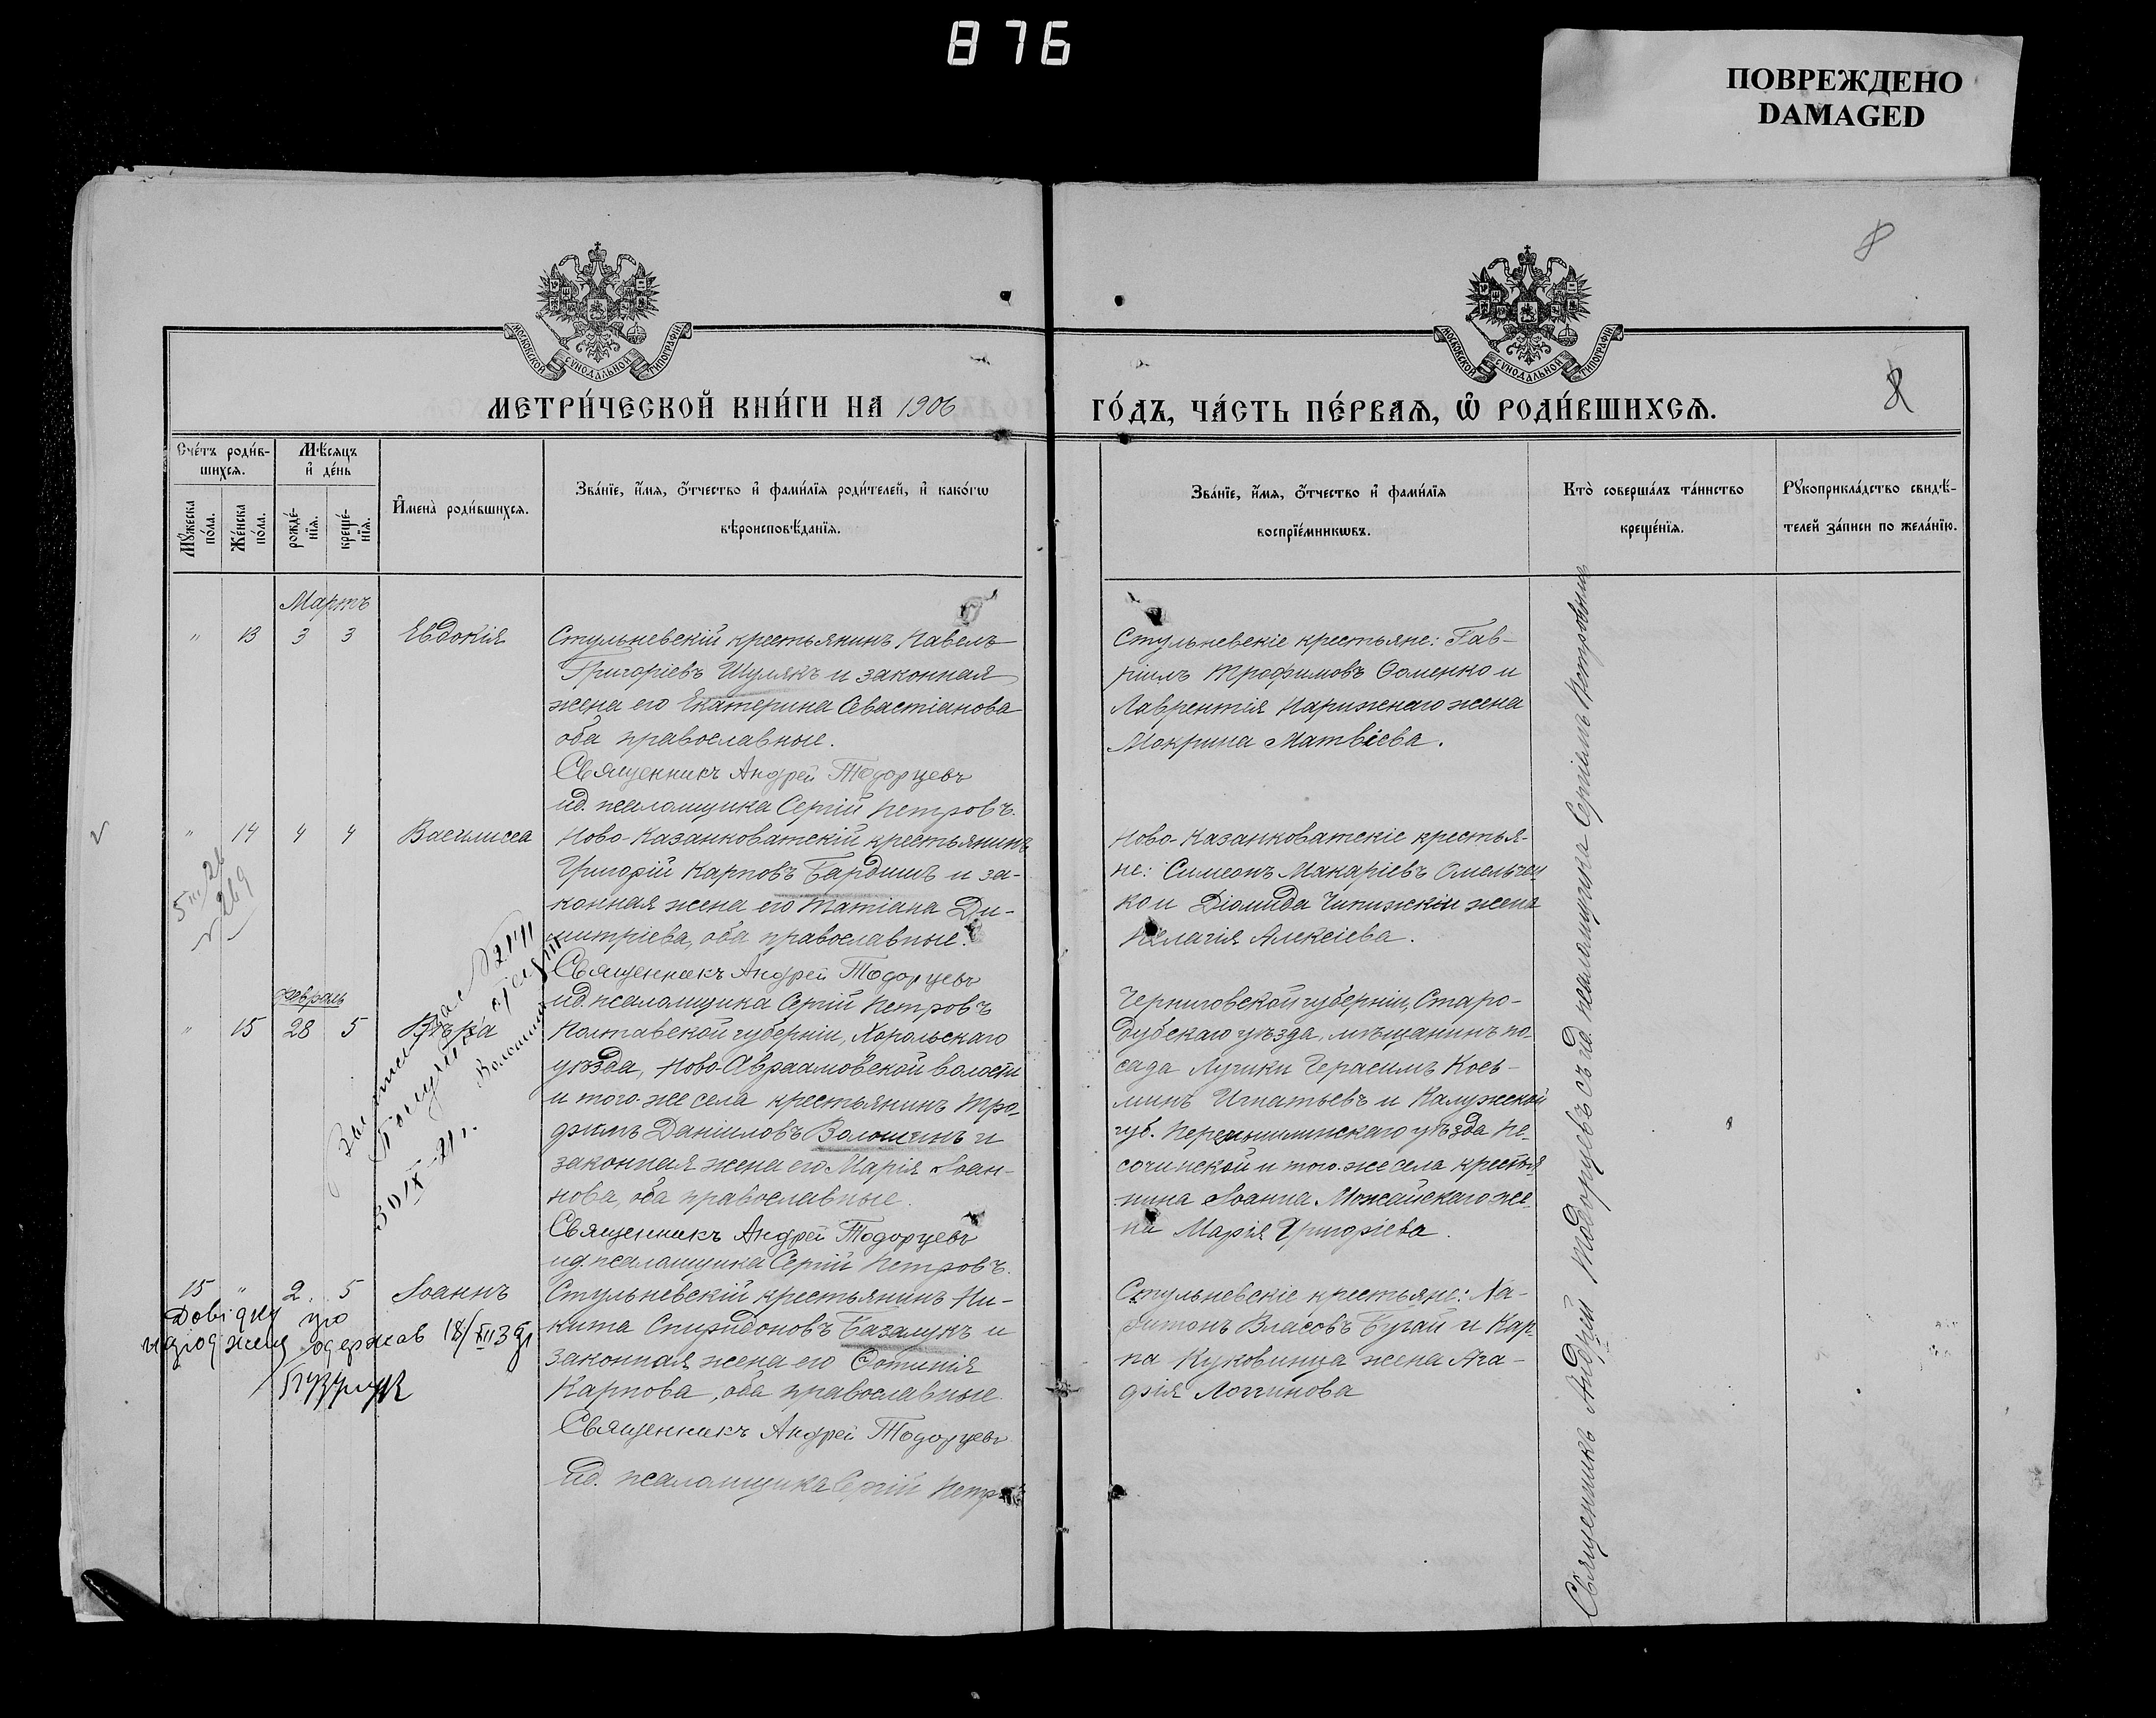 876
ПОВРЕЖДЕНО
DAMAGED
8
8
МОСКОВСКОЙ СѴНОДАЛЬНОЙ ТИПОГРАФІИ
МОСКОВСКОЙ СѴНОДАЛЬНОЙ ТИПОГРАФІИ
МЕТРИ́ЧЕСКОЙ КНИ́ГИ НА 1906
ГО́ДЪ, ЧА́СТЬ ПЕ́РВАѦ, Ѿ РОДИ́ВШИХСѦ.
Сче́тъ роди́в-
шихсѧ.
Мѣ́сѧцъ
и҆ де́нь
Мꙋ́жеска по́ла.
Же́нска по́ла.
рожде́-
нїѧ.
креще́-
нїѧ.
И҆мена̀ роди́вшихсѧ.
Зва́нїе, и҆́мѧ, ѻ҆́тчество и҆ фами́лїѧ роди́телей, и҆ како́гѡ
вѣроисповѣ́данїѧ.
Зва́нїе, и҆́мѧ, ѻ҆́тчество и҆ фами́лїѧ
воспрїе́мникѡвъ.
Кто̀ соверша́лъ та́инство
креще́нїѧ.
Рꙋкоприкла́дство свидѣ́-
телей за́писи по жела́нїю.
Мартъ
" 13 3 3 Евдокія
Стульневскій крестьянинъ Павелъ
Григоріевъ Шулякъ и законная
жена его Екатерина Севастіанова
оба православные.
Священникъ Андрей Тодорцевъ
ид. псаломщика Сергій Петровъ.
Стульневскіе крестьяне: Гав-
ріилъ Трофимовъ Ѳоменко и
Лаврентія Парижнаго жена
Мокрина Матвіева.
" 14 4 4 Василисса
Ново-Казанковатскій крестьянинъ
Григорій Карповъ Бардишъ и за-
конная жена его Татіана Ди-
митріева, оба православные.
Священникъ Андрей Тодорцевъ
ид. псаломщика Сергій Петровъ
Ново-Казанковатскіе крестья-
не: Симеонъ Макаріевъ Омельчен
ко и Діомида Чипижскій жена
Пелагія Алексіева.
5 III/26
269
Февраль
" 15 28 5 Вѣра
Полтавской губерніи, Хорольскаго
уѣзда, Ново-Авраамовской волости
и того-же села крестьянинъ Тро-
фимъ Даніиловъ Волошинъ и
законная жена его Марія Іоан-
нова, оба православные.
Священникъ Андрей Тодорцевъ
ид. псаломщика Сергій Петровъ.
Черниговской губерніи, Старо-
дубскаго уѣзда, мѣщанинъ по-
сада Лужки Герасимъ Кось-
минъ Игнатьевъ и Калужской
губ. Перемышлинскаго уѣзда Пе-
сочинской и того-же села крестья
нина Іоанна Можайскаго же-
на Марія Григоріева.
30/IX-21 г.
15 " 2. 5 Іоаннъ
Довідку про
народжену одержав 18/XII 3
Стульневскій крестьянинъ Ни-
кита Спиридоновъ Базалукъ и
законная жена его Фотинія
Карпова, оба православные.
Священникъ Андрей Тодорцевъ
ид. псаломщика Сергій Петровъ
Стульневскіе крестьяне: Ха-
ритонъ Власовъ Бугай и Кар
па Куковинца жена Ага-
фія Логгинова
Священникъ Андрей Тодорцевъ съ ид. псаломщика Сергіемъ Петровымъ